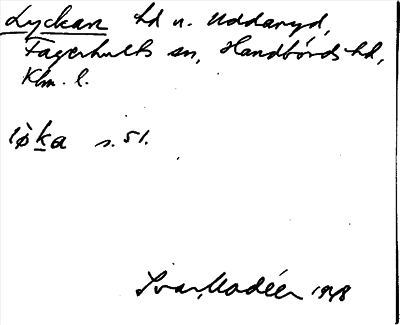 Lyckan hd u. Uddaryd,
Fagerhults sn, Handbörds hd,
Klm. l.
lø̀ka s. 51.
Ivar Modéer 1948